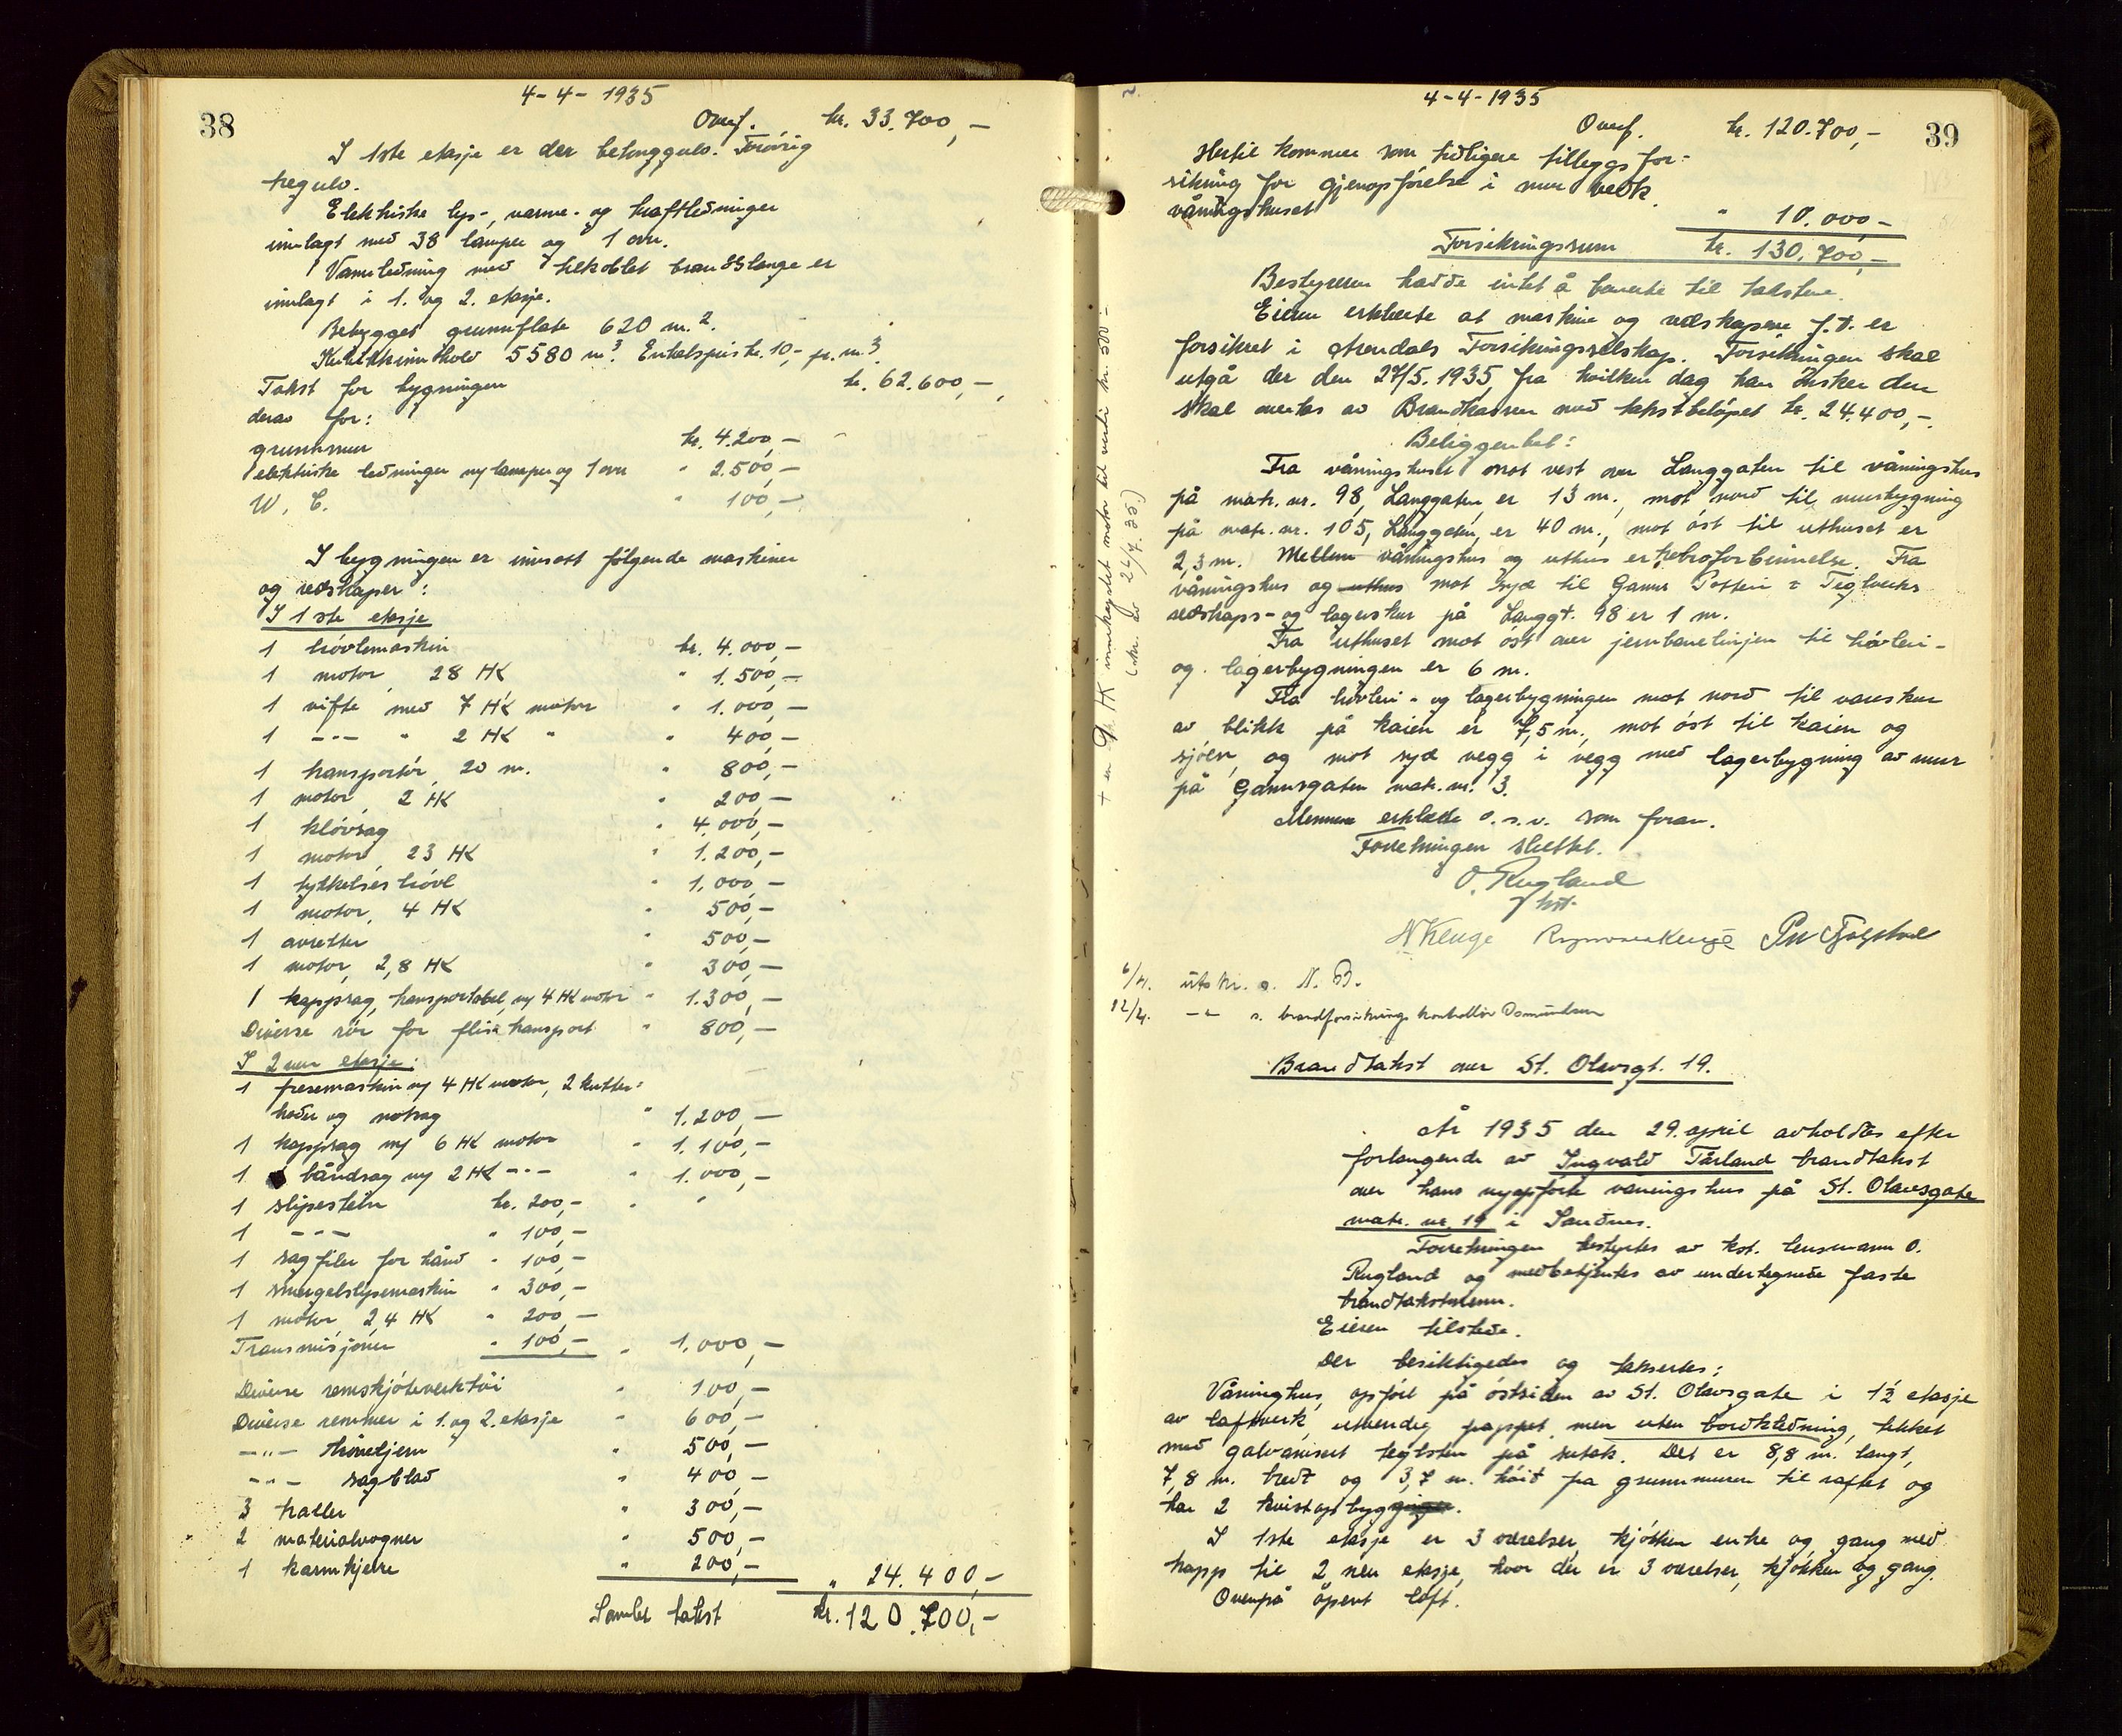 38
4-4-1935
Overf. kr. 33.700,-
I 1ste etasje er der betonggulv. Forøvrig
tregulv.
Elektriske lys-, varme- og kraftledninger
innlagt med 38 lamper og 1 ovn.
Vannledning med tilkoblet brandslange er
innlagt i 1. og 2. etasje.
Bebygget grunnflate 620 m.²
Kubikkinnhold 5580 m³. Enhetspris kr. 10,- pr. m.³
Takst for bygningen kr. 62.600,-
derav for:
grunnmur kr. 4.200,-
elektriske ledninger m/lamper og 1 ovn " 2.500,-
W. C. " 100,-
I bygningen er innsatt følgende maskiner
og redskaper:
I 1ste etasje
1 høvlemaskin kr. 4.000,-
1 motor, 28 HK " 1.500,-
1 vifte med 7 HK motor " 1.000,-
1 -"- " 2 HK " " 400,-
1 transportør, 20 m. " 800,-
1 motor, 2 HK " 200,-
1 kløvsag " 4.000,-
1 motor, 23 HK " 1.200,-
1 tykkelseshøvl " 1.000,-
1 motor, 4 HK " 500,-
1 avretter " 500,-
1 motor, 2,8 HK " 300,-
1 kappsag, transportabel, m/ 4 HK motor " 1.300,-
Diverse rør for flistransport " 800,-
I 2nen etasje:
1 fresemaskin m/ 4 HK motor, 2 kutter-
hoder og notsag " 1.200,-
1 kappsag m/ 6 HK motor " 1.100,-
1 båndsag m/ 2 HK -"- " 1.000,-
1 slipesten kr. 200,- " "
1 -"- " 100,-
1 sagfiler for hånd " 100,-
1 smergelslipemaskin " 300,-
1 motor, 2,4 HK " 200,-
Transmisjoner " 100,- " 1.000,-
Diverse remskjøteverktøi " 100,-
Diverse remmer i 1. og 2. etasje " 600,-
-"- høveljern " 500,-
-"- sagblad " 400,-
3 traller " 300,-
2 materialvogner " 500,-
1 karmkjerre " 200,- " 24.400,-
Samlet takst kr. 120.700,-
+ en 9 HK innkøpt motor til verdi kr. 500,-
(skr. av 24/7.35.)
39
4-4-1935
Overf. kr. 120.700,-
Hertil kommer som tidligere tilleggsfor-
sikring for gjenopførelse i mur vedk.
våningshuset " 10.000,-
Forsikringssum kr. 130.700,-
Bestyreren hadde intet å bemerke til takstene.
Eieren erklærte at maskine og redskapene f.t. er
forsikret i Arendals Forsikringsselskap. Forsikringen skal
utgå der den 27/5.1935, fra hvilken dag han ønsker den
skal overtas av Brandkassen med takstbeløpet kr. 24.400,-.
Beliggenhet:
Fra våningshuset mot vest over Langgaten til våningshus
på matr. nr. 98, Langgaten, er 13 m., mot nord til murbygning
på matr. nr. 105, Langgaten, er 40 m., mot øst til uthuset er
2,3 m. Mellem våningshus og uthus er trebroforbinnelse. Fra
våningshus og uthus mot syd til Gann's Potteri & Teglverks
redskaps- og lagerskur på Langgt. 98 er 1 m.
Fra uthuset mot øst over jernbanelinjen til høvleri-
og lagerbygningen er 6 m.
Fra høvleri- og lagerbygningen mot nord til vareskur
av blikk på kaien er 7,5 m., mot øst til kaien og
sjøen, og mot syd vegg i vegg med lagerbygning av mur
på Gannsgaten matr. nr. 3.
Mennene erklærte o.s.v. som foran.
Forretningen sluttet.
O. Rugland
kst.
6/4. utskr. s. N. B.
12/4. -"- s. brandforsikrings kontrollør
Brandtakst over St. Olavsgt. 19.
År 1935 den 29. april avholdtes efter
forlangende av Ingvald Tårland brandtakst
over hans nyopførte våningshus på St. Olavsgate
matr. nr. 19 i Sandnes.
Forretningen bestyrtes av kst. lensmann O.
Rugland og medbetjentes av undertegnede faste
brandtakstmenn.
Eieren tilstede.
Der besiktigedes og takseredes:
Våninghus, opført på østsiden av St. Olavsgate i 1½ etasje
av laftverk, utvendig pappet, men uten bordkledning, tekket
med galvanisert teglsten på sutak. Det er 8,8 m. langt,
7,8 m. bredt og 3,7 m. høit fra grunnmuren til raftet og
har 2 kvistopbygg.
I 1ste etasje er 3 værelser, kjøkken entre og gang med
trapp til 2 nen etasje, hvor der er 3 værelser, kjøkken og gang.
Ovenpå åpent loft.